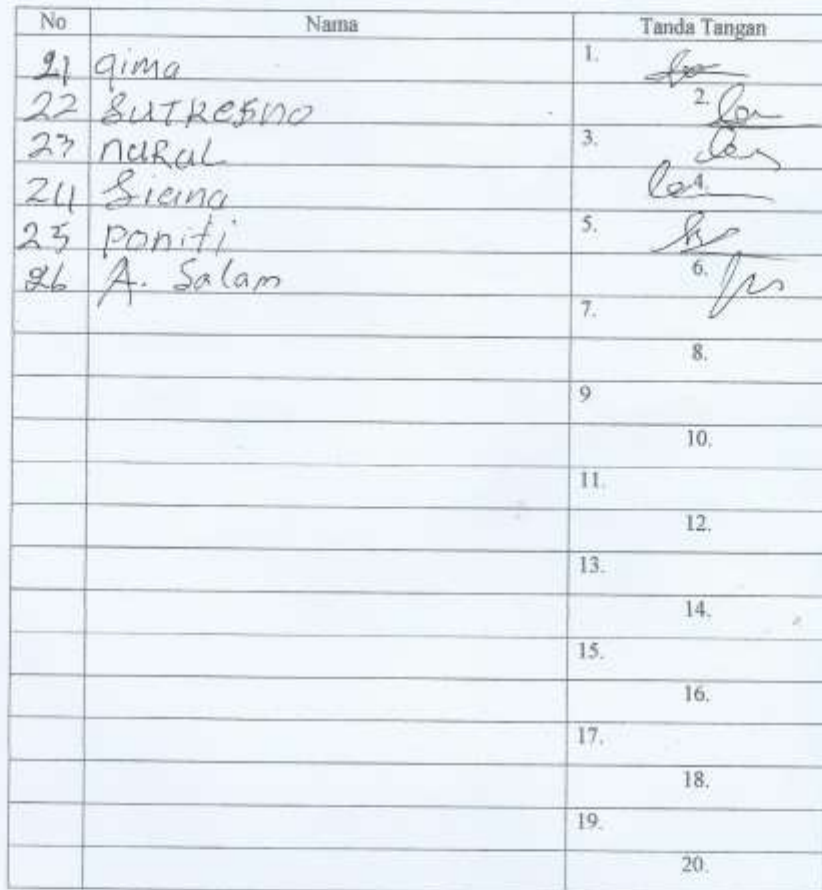 No Nama Tanda Tangan
21 qima 1.
22 SUTResno 2.
23 nuRul 3.
24 Siana 4.
25 poniti 5.
26 A. Salam 6.
7.
8.
9
10.
11.
12.
13.
14.
15.
16.
17.
18.
19.
20.